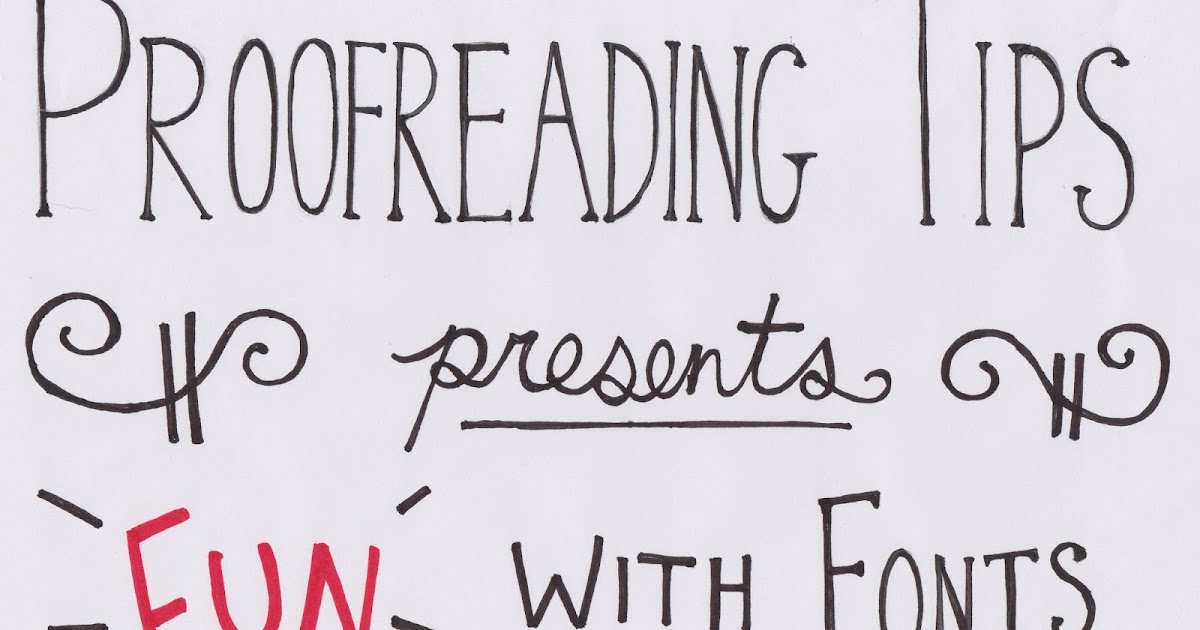 PROOFREADING TIPS
presents
FUN WITH FONTS